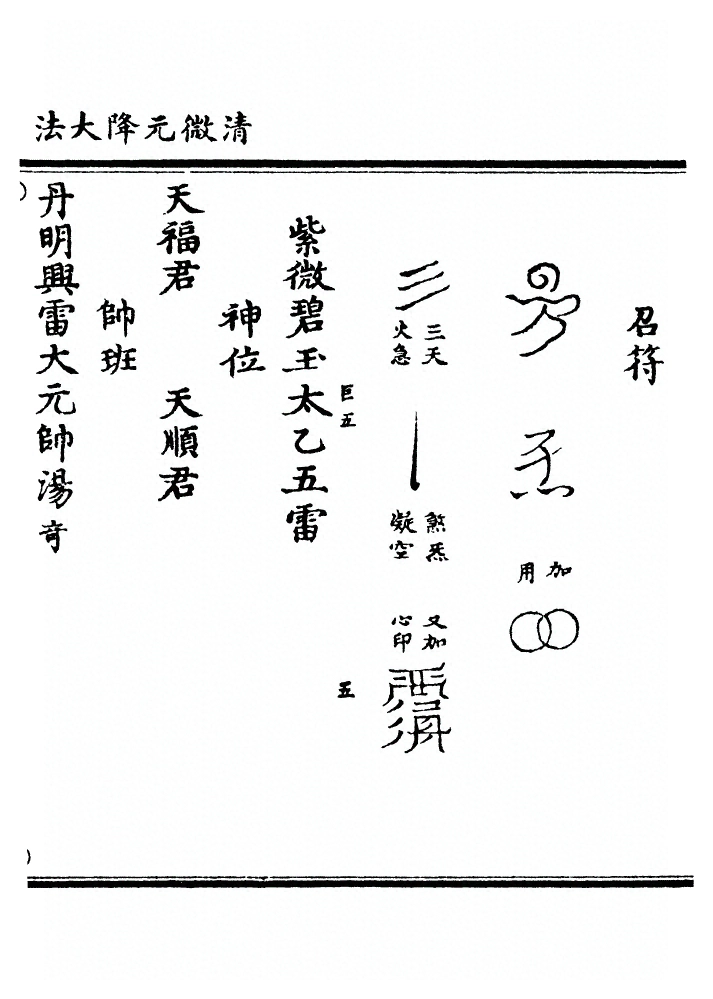 清微元降大法
召符
加用
三天火急
煞炁凝空
又加心印
巨五
五
紫微碧玉太乙五雷
神位
天福君 天順君
帥班
丹明興雷大元帥湯奇